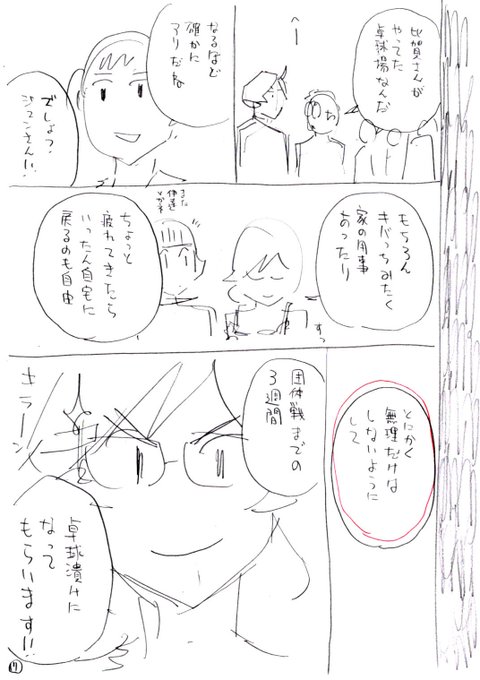 比賀さんが
やってた
卓球場なんだ
へー
なるほど
確かに
アリだね
でしょっ?
もちろん
キバっちみたく
家の用事
あったり
すっ
ちょっと
疲れてきたら
いったん自宅に
戻るのも自由
とにかく
無理だけは
しないように
して
団体戦までの
3週間
キラーン
卓球漬けに
なって
もらいます!!